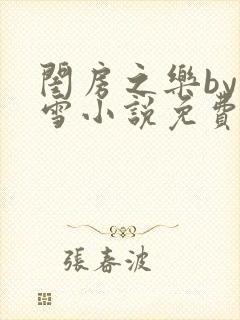 閨房之樂by
雪小說免費
張春波